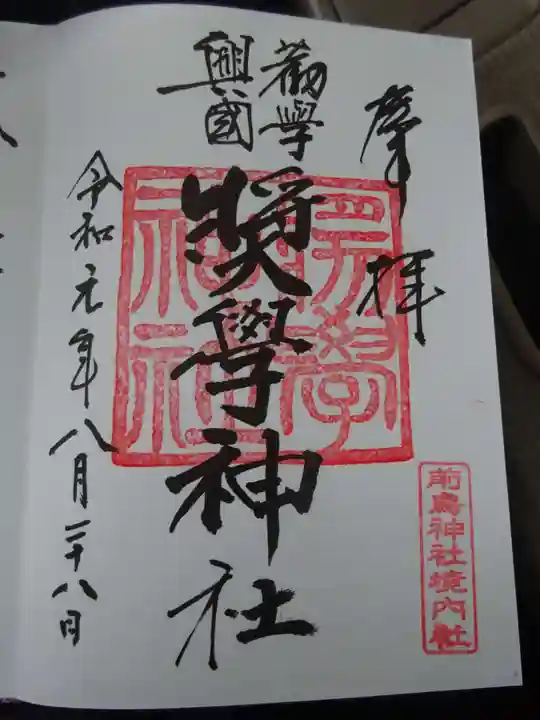 奉拝
勸學
興國
奬學神社
奬學神社
令和元年八月二十八日
前鳥神社境内社